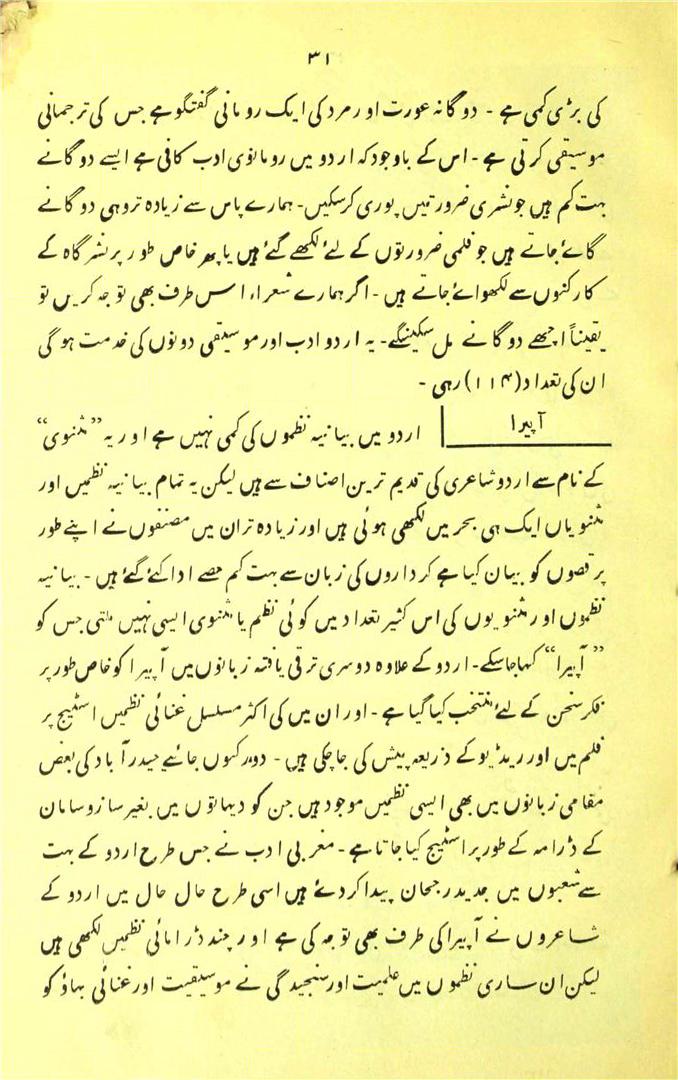 ۳۱
کی بڑی کمی ہے - دوگانہ عورت اور مرد کی ایک رومانی گفتگو ہے جس کی ترجمانی
موسیقی کرتی ہے - اس کے باوجود کہ اردو میں رومانوی ادب کافی ہے ایسے دوگانے
بہت کم ہیں جو نشری ضرورتیں پوری کرسکیں - ہمارے پاس سے زیادہ تر وہی دوگانے
گائے جاتے ہیں جو فلمی ضرورتوں کے لئے لکھے گئے ہیں یا پھر خاص طور پر نشر گاہ کے
کارکنوں سے لکھوائے جاتے ہیں - اگر ہمارے شعراء اس طرف بھی توجہ کریں تو
یقیناً اچھے دوگانے مل سکینگے - یہ اردو ادب اور موسیقی دونوں کی خدمت ہوگی
ان کی تعداد (۱۱۴) رہی -
آپیرا
اردو میں بیانیہ نظموں کی کمی نہیں ہے اور یہ "مثنوی"
کے نام سے اردو شاعری کی قدیم ترین اصناف سے ہیں لیکن یہ تمام بیانیہ نظمیں اور
مثنویاں ایک ہی بحر میں لکھی ہوئی ہیں اور زیادہ تر ان میں مصنفوں نے اپنے طور
پر قصوں کو بیان کیا ہے کرداروں کی زبان سے بہت کم حصے ادا کئے گئے ہیں - بیانیہ
نظموں اور مثنویوں کی اس کثیر تعداد میں کوئی نظم یا مثنوی ایسی نہیں ملتی جس کو
"آپیرا" کہا جاسکے - اردو کے علاوہ دوسری ترقی یافتہ زبانوں میں آپیرا کو خاص طور پر
فکر سخن کے لئے منتخب کیا گیا ہے - اور ان میں کی اکثر مسلسل غنائی نظمیں اسٹیج پر
فلم میں اور ریڈیو کے ذریعہ پیش کی جاچکی ہیں - دور کیوں جائیے حیدرآباد کی بعض
مقامی زبانوں میں بھی ایسی نظمیں موجود ہیں جن کو دیہاتوں میں بغیر ساز و سامان
کے ڈرامہ کے طور پر اسٹیج کیا جاتا ہے - مغربی ادب نے جس طرح اردو کے بہت
سے شعبوں میں جدید رجحان پیدا کردئے ہیں اسی طرح حال حال میں اردو کے
شاعروں نے آپیرا کی طرف بھی توجہ کی ہے اور چند ڈرامائی نظمیں لکھی ہیں
لیکن ان ساری نظموں میں علمیت اور سنجیدگی نے موسیقیت اور غنائی بہاؤ کو